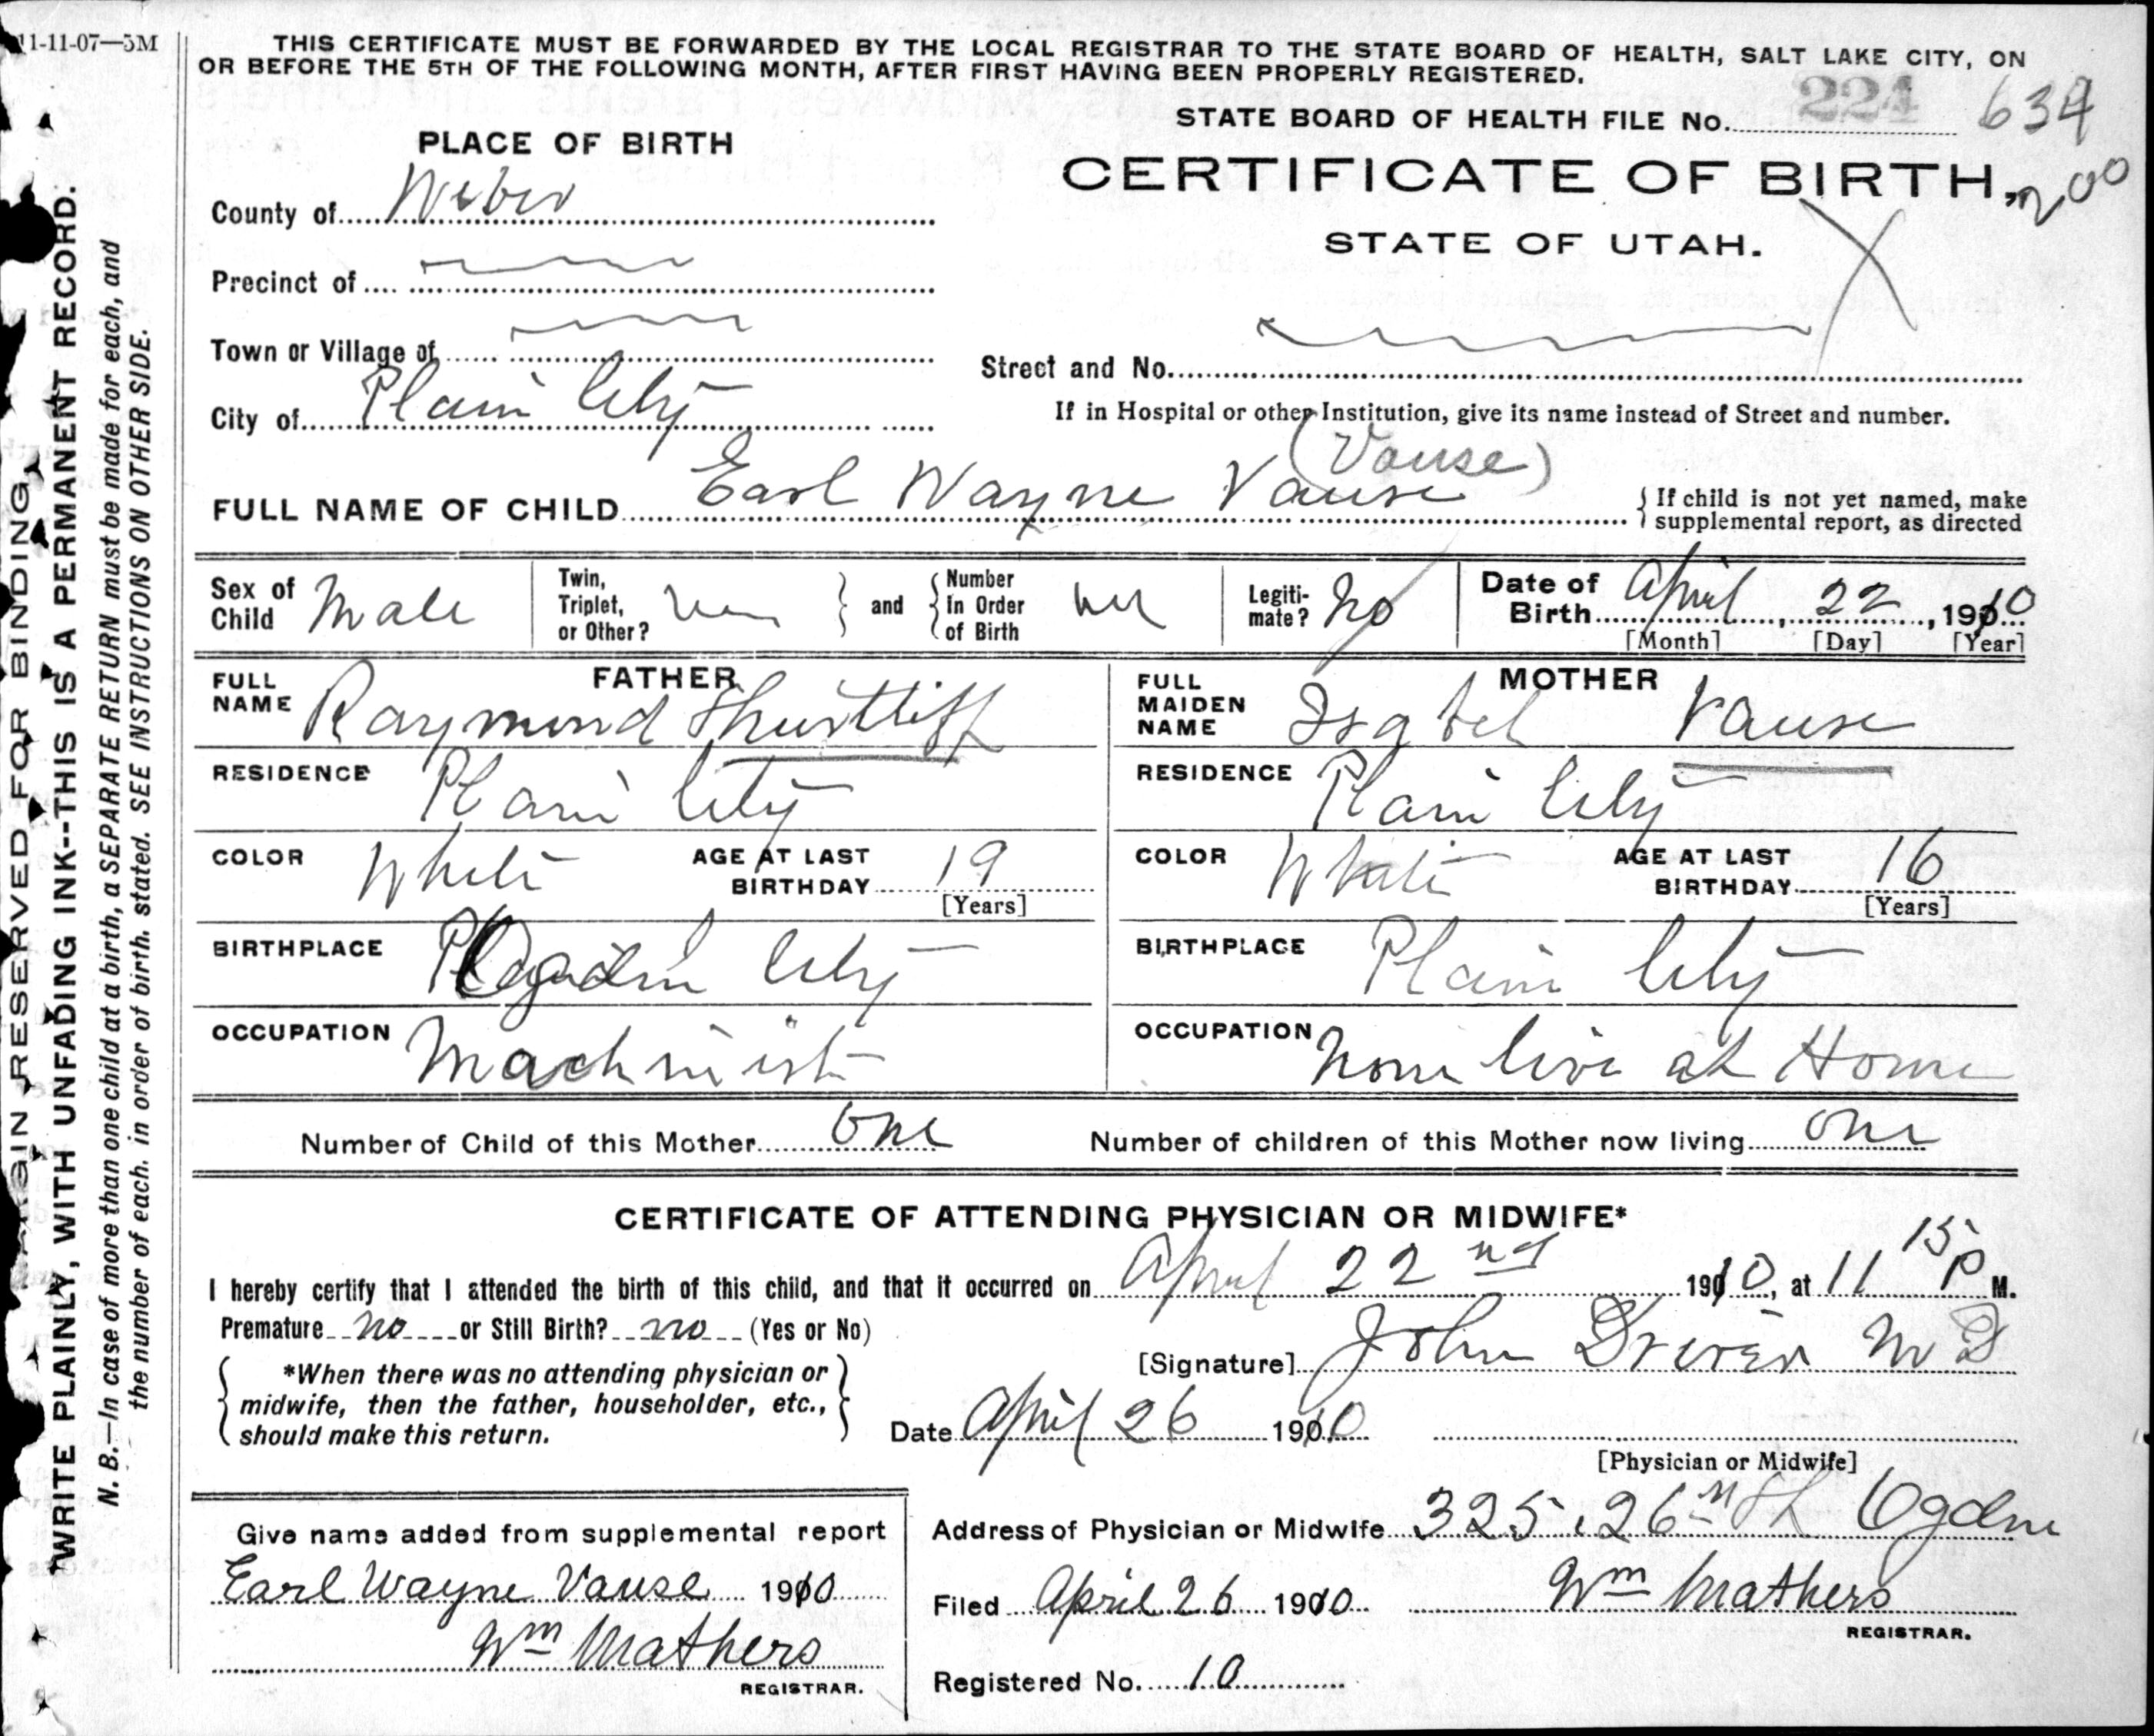 11-11-07—5M
THIS CERTIFICATE MUST BE FORWARDED BY THE LOCAL REGISTRAR TO THE STATE BOARD OF HEALTH, SALT LAKE CITY, ON
OR BEFORE THE 5TH OF THE FOLLOWING MONTH, AFTER FIRST HAVING BEEN PROPERLY REGISTERED.
STATE BOARD OF HEALTH FILE No. 224 634
PLACE OF BIRTH
CERTIFICATE OF BIRTH,
200
County of Weber
STATE OF UTAH.
Precinct of
Town or Village of
Street and No.
City of Plain City
If in Hospital or other Institution, give its name instead of Street and number.
(Vause)
FULL NAME OF CHILD Earl Wayne Vause
{ If child is not yet named, make
supplemental report, as directed
Sex of Child Male
Twin, Triplet, or Other?
} and {
Number in Order of Birth
Legiti-mate? No
Date of Birth April, 22, 1910
[Month] [Day] [Year]
FATHER
FULL NAME Raymond Shurtliff
MOTHER
FULL MAIDEN NAME Isabel Vause
RESIDENCE Plain City
RESIDENCE Plain City
COLOR White AGE AT LAST BIRTHDAY 19 [Years]
COLOR White AGE AT LAST BIRTHDAY 16 [Years]
BIRTHPLACE Ogden City
BIRTHPLACE Plain City
OCCUPATION Machinist
OCCUPATION None live at Home
Number of Child of this Mother One
Number of children of this Mother now living One
CERTIFICATE OF ATTENDING PHYSICIAN OR MIDWIFE*
I hereby certify that I attended the birth of this child, and that it occurred on April 22nd 1910, at 11 15 P M.
Premature no or Still Birth? no (Yes or No)
[Signature] John Driver M D
{ *When there was no attending physician or
midwife, then the father, householder, etc.,
should make this return. }
Date April 26 1910
[Physician or Midwife]
Address of Physician or Midwife 325, 26th St Ogden
Give name added from supplemental report
Earl Wayne Vause 1910
Wm Mathers
REGISTRAR.
Filed April 26 1910 Wm Mathers
REGISTRAR.
Registered No. 10
MARGIN RESERVED FOR BINDING.
WRITE PLAINLY, WITH UNFADING INK--THIS IS A PERMANENT RECORD.
N. B.—In case of more than one child at a birth, a SEPARATE RETURN must be made for each, and
the number of each, in order of birth, stated. SEE INSTRUCTIONS ON OTHER SIDE.